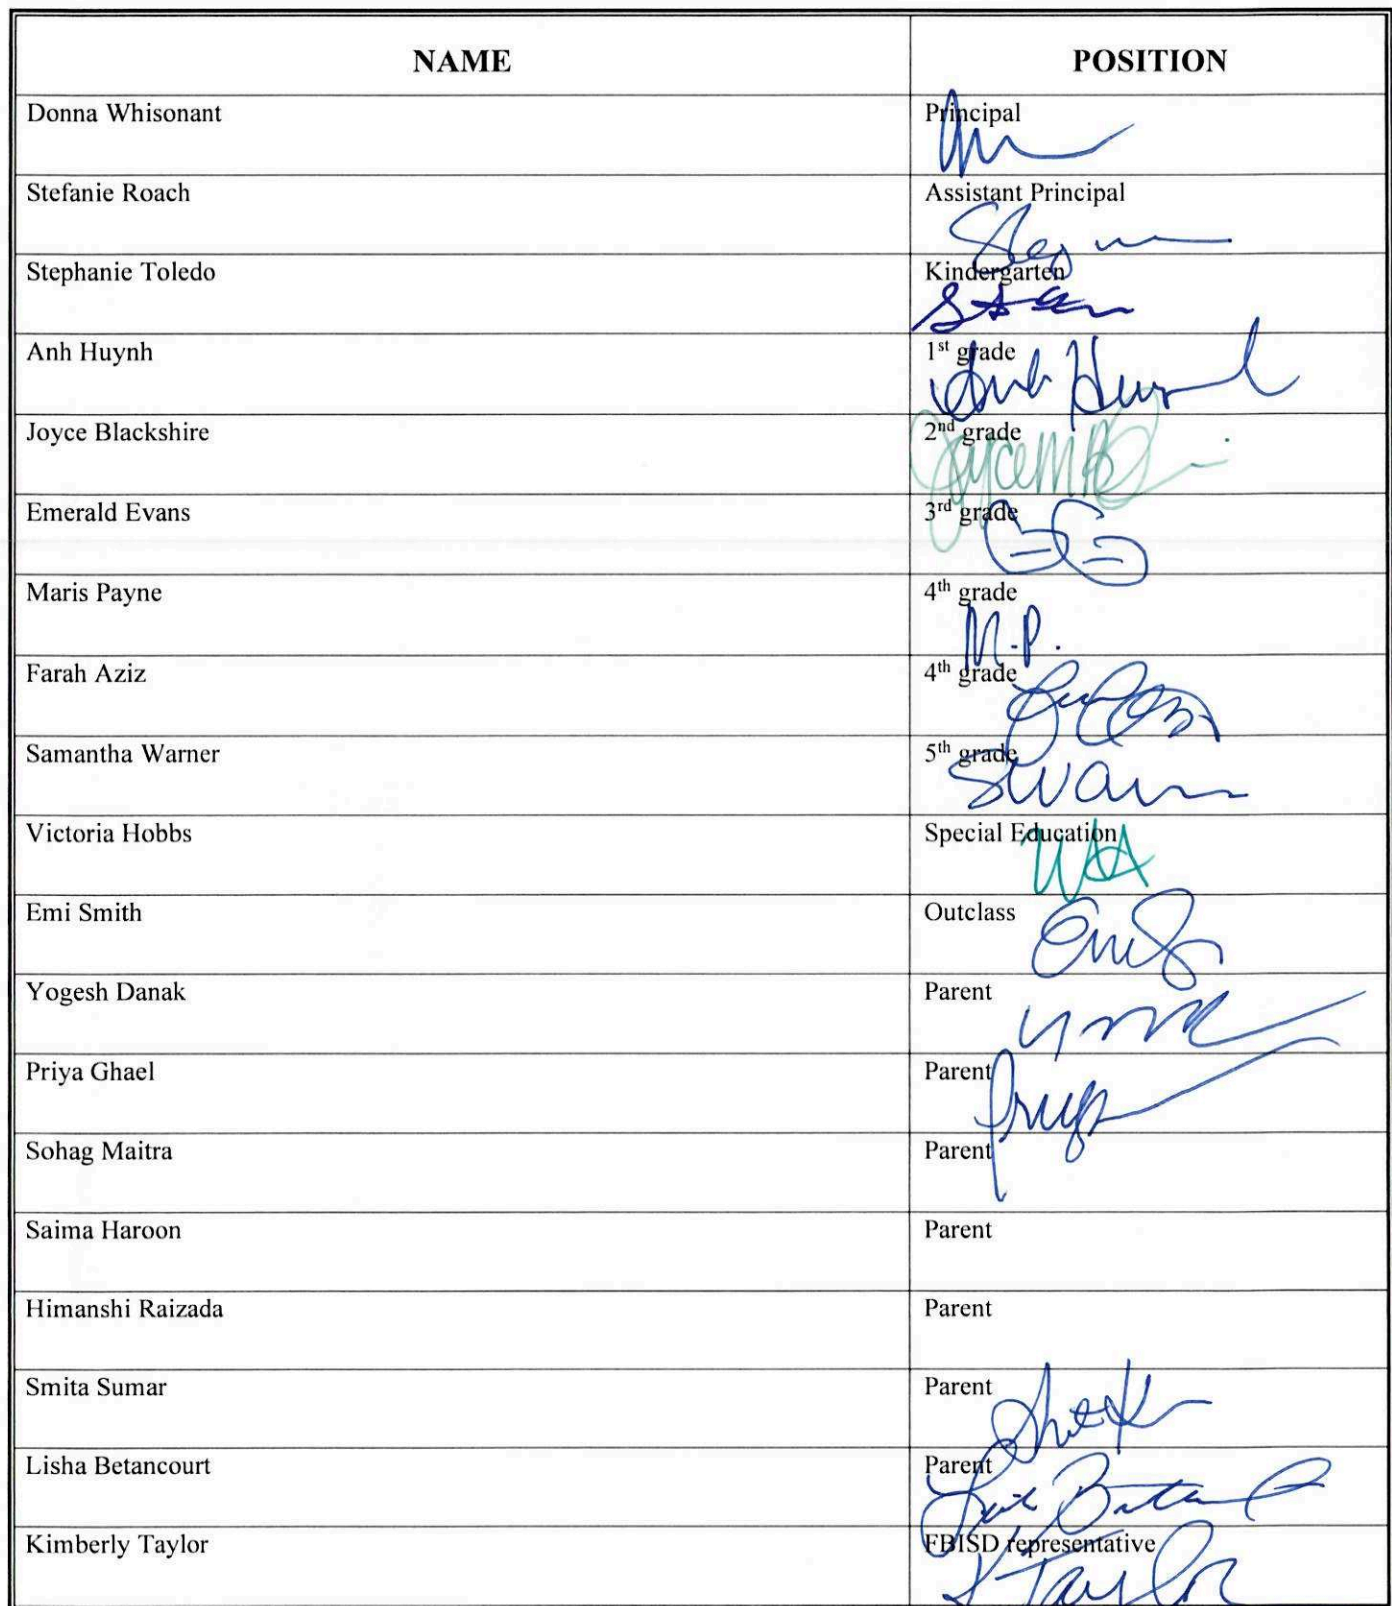 NAME POSITION
Donna Whisonant Principal
Stefanie Roach Assistant Principal
Stephanie Toledo Kindergarten
Anh Huynh 1st grade
Anh Huynh
Joyce Blackshire 2nd grade
Emerald Evans 3rd grade
EE
Maris Payne 4th grade
M.P.
Farah Aziz 4th grade
Samantha Warner 5th grade
Victoria Hobbs Special Education
Emi Smith Outclass
Yogesh Danak Parent
Priya Ghael Parent
Priya
Sohag Maitra Parent
Saima Haroon Parent
Himanshi Raizada Parent
Smita Sumar Parent
Lisha Betancourt Parent
Kimberly Taylor FBISD representative
KTaylor